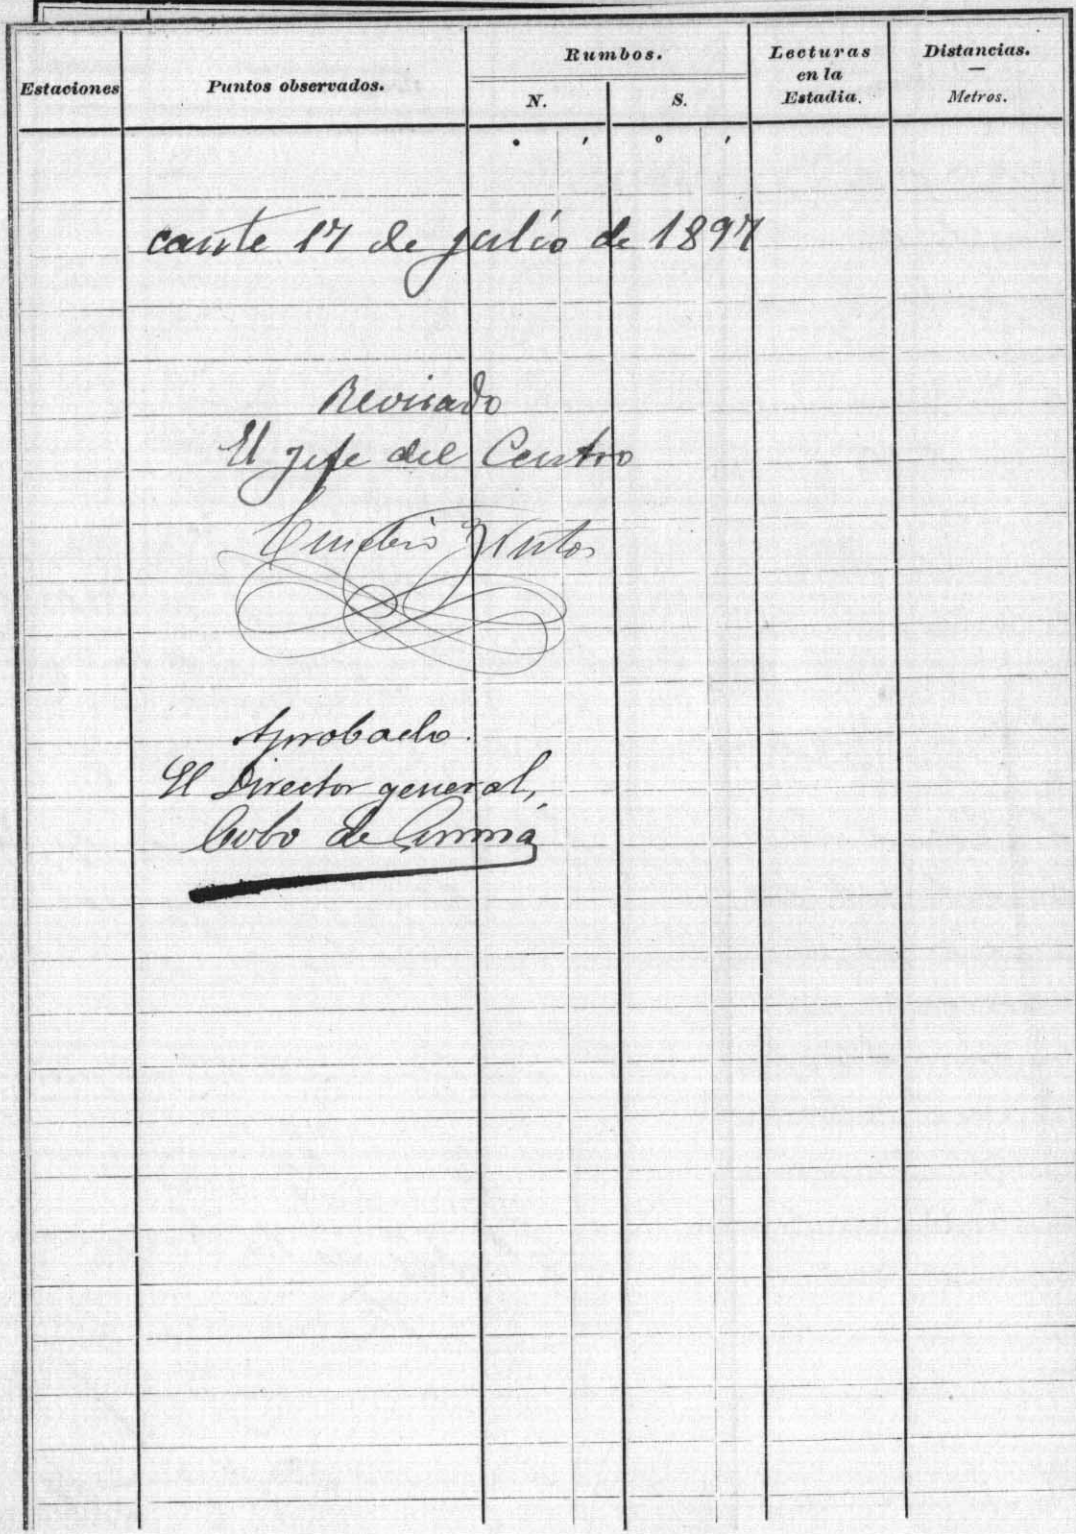 Estaciones
Puntos observados.
Rumbos.
N.
S.
Lecturas
en la
Estadia.
Distancias.
—
Metros.
° ′ ° ′
cante 17 de julio de 1897
Revisado
El jefe del Centro
Aprobado.
El Director general,
Cobo de